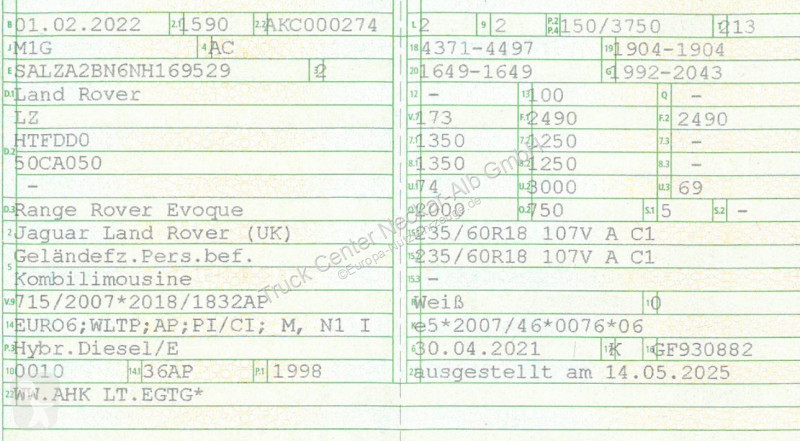 B 01.02.2022 2.1 1590 2.2 AKC000274
J M1G 4 AC
E SALZA2BN6NH169529 3 2
D.1 Land Rover
LZ
HTFDD0
D.2 50CA050
-
D.3 Range Rover Evoque
2 Jaguar Land Rover (UK)
5 Geländefz.Pers.bef.
Kombilimousine
V.9 715/2007*2018/1832AP
14 EURO6;WLTP;AP;PI/CI; M, N1 I
P.3 Hybr.Diesel/E
10 0010 14.1 36AP P.1 1998
22 WW.AHK LT.EGTG*
L 2 9 2 P.2 P.4 150/3750 T 213
18 4371-4497 19 1904-1904
20 1649-1649 G 1992-2043
12 - 13 100 Q -
V.7 173 F.1 2490 F.2 2490
7.1 1350 7.2 1250 7.3 -
8.1 1350 8.2 1250 8.3 -
U.1 74 U.2 3000 U.3 69
O.1 2000 O.2 750 S.1 5 S.2 -
15.1 235/60R18 107V A C1
15.2 235/60R18 107V A C1
15.3 -
R Weiß 11 0
K e5*2007/46*0076*06
6 30.04.2021 17 K 16 GF930882
21 ausgestellt am 14.05.2025
Truck Center Neckar-Alb GmbH
©Europa-Nutzfahrzeuge.de